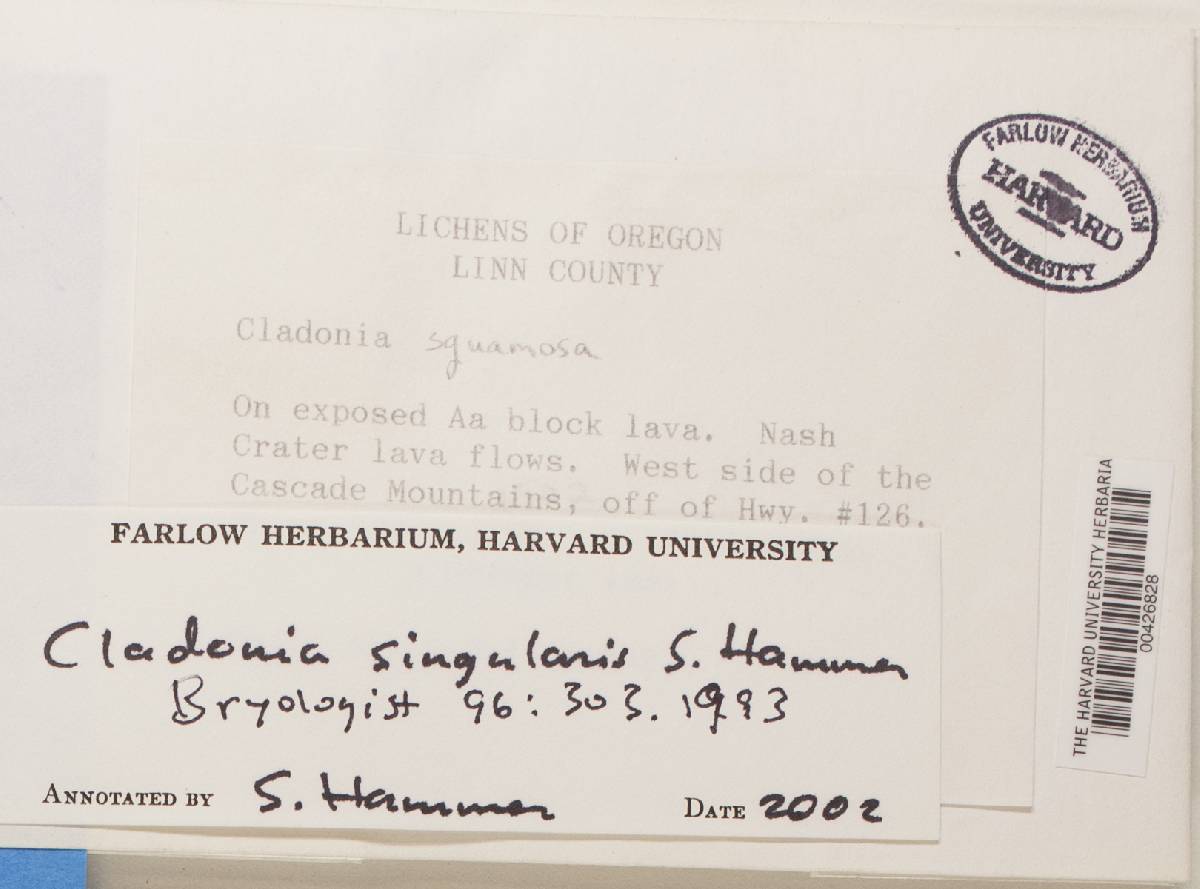 FARLOW HERBARIUM
HARVARD
UNIVERSITY
LICHENS OF OREGON
LINN COUNTY
Cladonia squamosa
On exposed Aa block lava. Nash
Crater lava flows. West side of the
Cascade Mountains, off of Hwy. #126.
FARLOW HERBARIUM, HARVARD UNIVERSITY
Cladonia singularis S. Hammer
Bryologist 96: 303. 1993
ANNOTATED BY S. Hammer DATE 2002
THE HARVARD UNIVERSITY HERBARIA
00426828